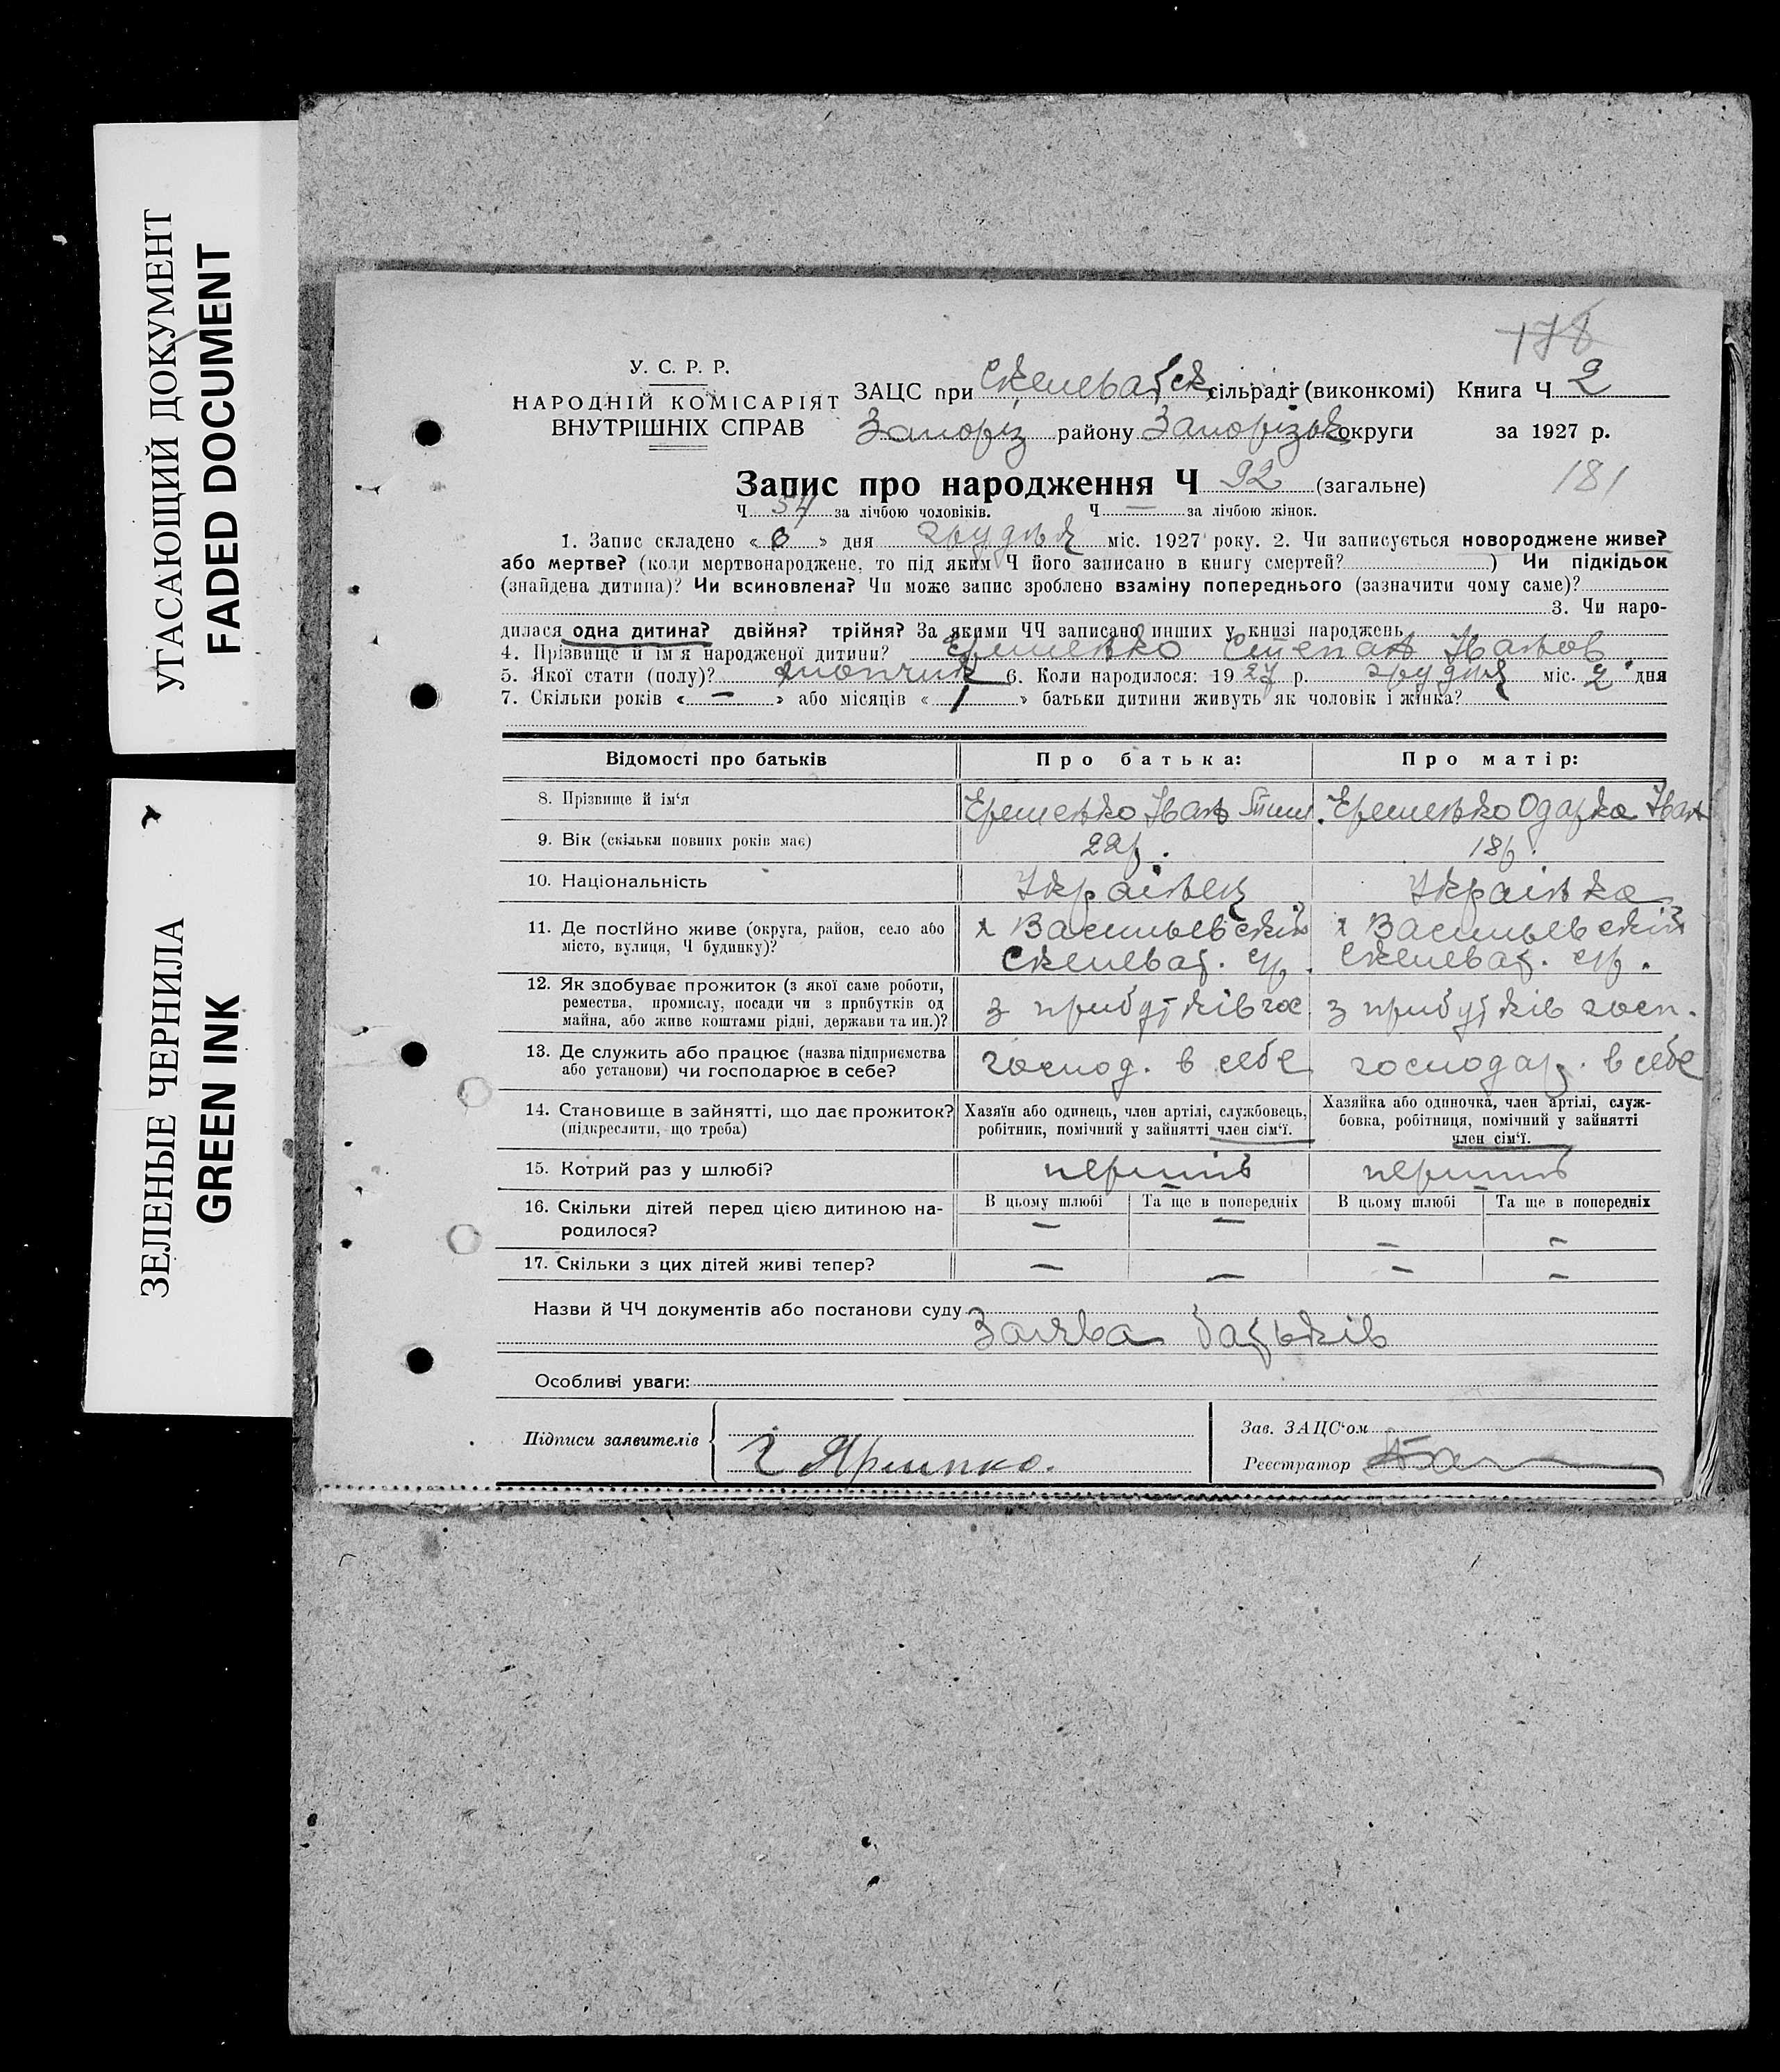 УГАСАЮЩИЙ ДОКУМЕНТ
FADED DOCUMENT
ЗЕЛЕНЫЕ ЧЕРНИЛА
GREEN INK
178
У. С. Р. Р.
НАРОДНІЙ КОМІСАРІЯТ
ВНУТРІШНІХ СПРАВ
ЗАЦС при Скелеватск сільраді (виконкомі) Книга Ч 2
Запоріз району Запорізьк округи за 1927 р.
Запис про народження Ч 92 (загальне) 181
Ч 54 за лічбою чоловіків. Ч — за лічбою жінок.
1. Запис складено « 6 » дня грудня міс. 1927 року. 2. Чи записується новороджене живе?
або мертве? (коли мертвонароджене, то під яким Ч його записано в книгу смертей? ) Чи підкідьок
(знайдена дитина)? Чи всиновлена? Чи може запис зроблено взаміну попереднього (зазначити чому саме)?
3. Чи наро-
дилася одна дитина? двійня? трійня? За якими ЧЧ записано инших у книзі народжень
4. Прізвище й ім'я народженої дитини? Єрешенко Степан Іванов
5. Якої стати (полу)? хлопчик 6. Коли народилося: 1927 р. грудня міс. 2 дня
7. Скільки років « — » або місяців « 1 » батьки дитини живуть як чоловік і жінка?
Відомості про батьків Про батька: Про матір:
8. Прізвище й ім'я Єрешенко Іван Тим. Єрешенко Одарка Іван
9. Вік (скільки повних років має) 22р. 18р.
10. Національність Українец Українка
11. Де постійно живе (округа, район, село або х Васильевский х Васильевский
місто, вулиця, Ч будинку)? Скелеват. ср. Скелеват. ср.
12. Як здобуває прожиток (з якої саме роботи,
ремества, промислу, посади чи з прибутків од з прибутків гос з прибутків госп.
майна, або живе коштами рідні, держави та ин.)?
13. Де служить або працює (назва підприємства господ. в себе господар. в себе
або установи) чи господарює в себе?
14. Становище в зайнятті, що дає прожиток? Хазяїн або одинець, член артілі, службовець, Хазяйка або одиночка, член артілі, служ-
(підкреслити, що треба) робітник, помічний у зайнятті член сім'ї. бовка, робітниця, помічний у зайнятті
член сім'ї.
15. Котрий раз у шлюбі? перший перший
16. Скільки дітей перед цією дитиною на- В цьому шлюбі Та ще в попередніх В цьому шлюбі Та ще в попередніх
родилося? — — — —
17. Скільки з цих дітей живі тепер? — — — —
Назви й ЧЧ документів або постанови суду
Заява батьків
Особливі уваги:
Підписи заявителів
Зав. ЗАЦС'ом
Реєстратор